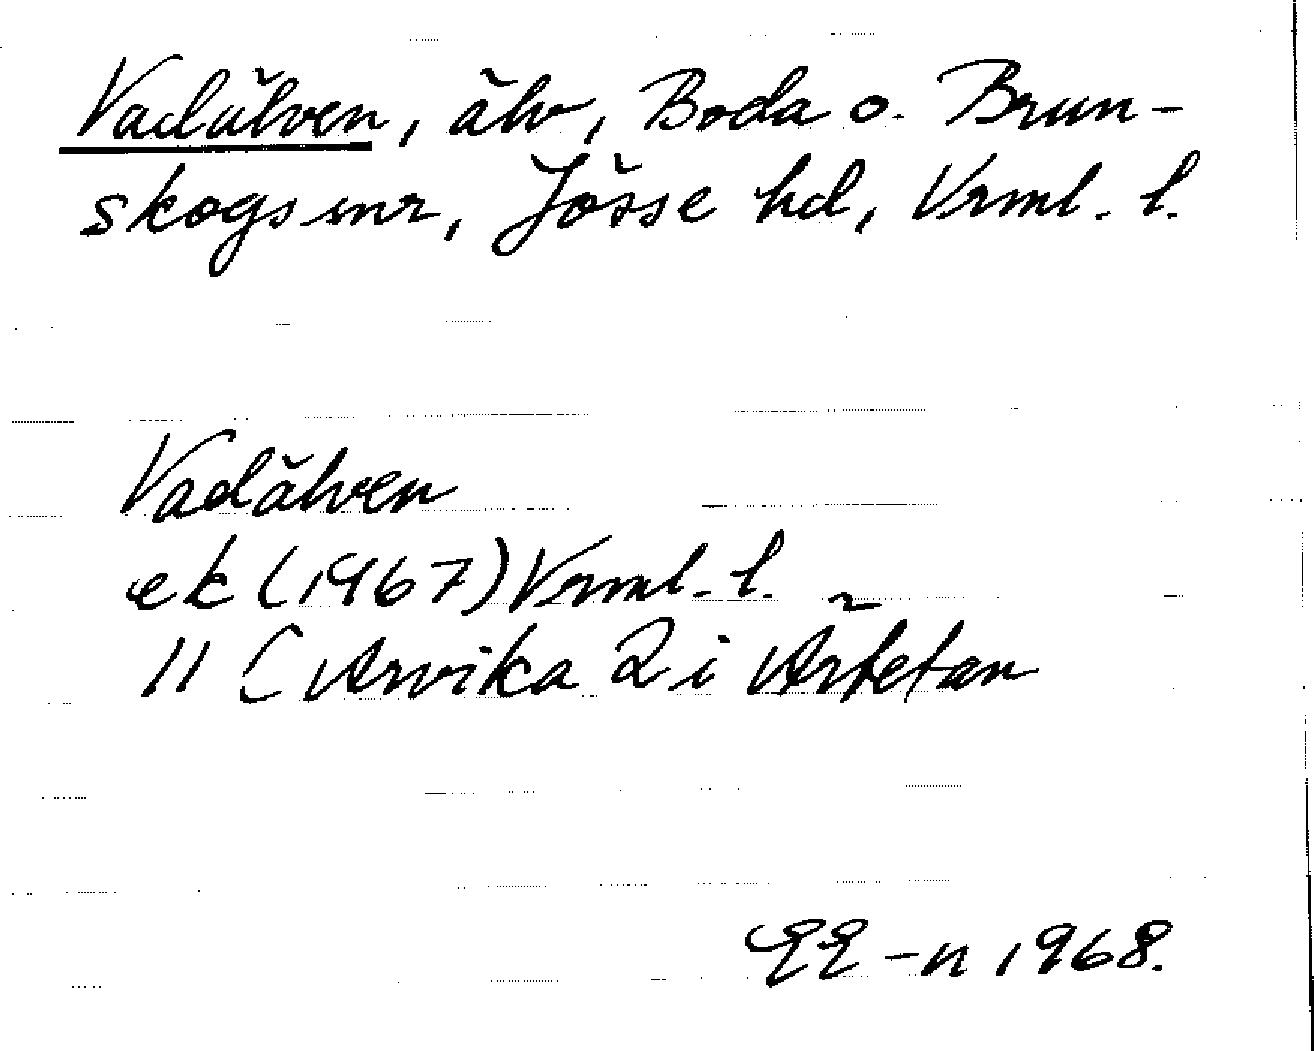 Vadälven, älv, Boda o. Brun-
skogs snr, Jösse hd, Vrml. l.
Vadälven
ek (1967) Vrml. l.
11 C Arvika 2 i Ärtetan
EE-n 1968.